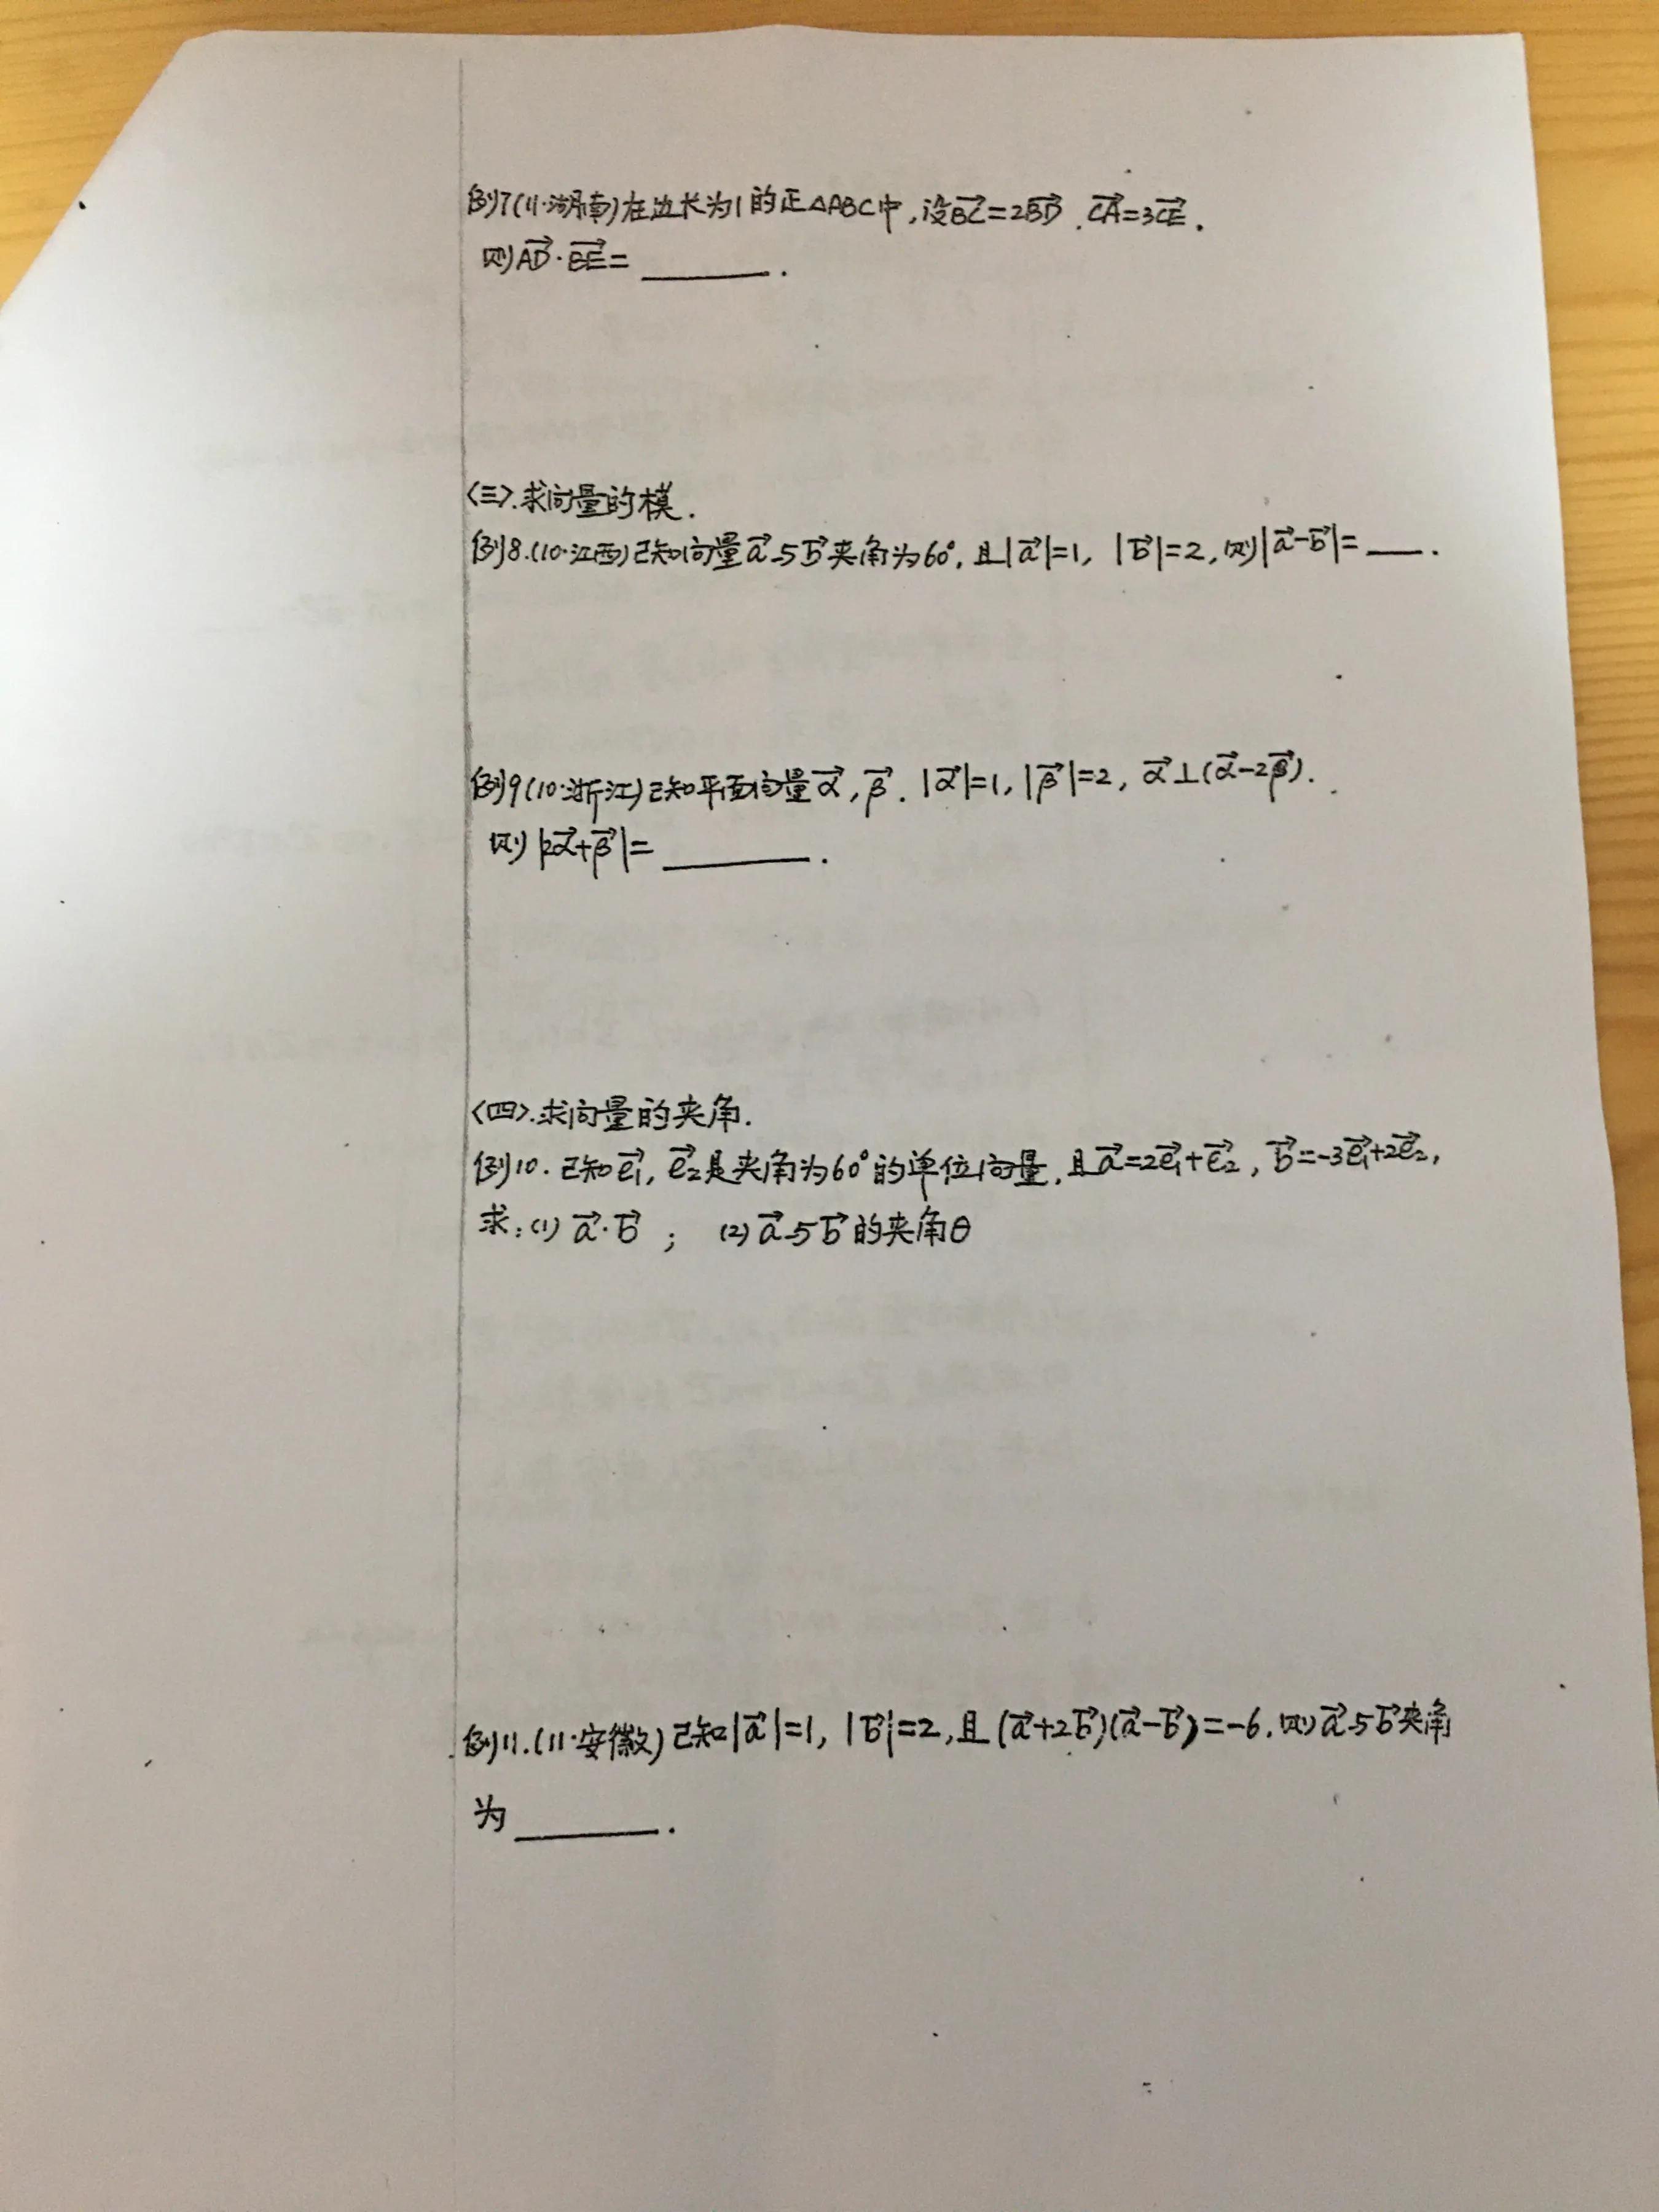 例7(11·湖南)在边长为1的正△ABC中,设BC→=2BD→,CA→=3CE→.
则AD→·BE→=______.
<三>.求向量的模.
例8.(10·江西)已知向量a→与b→夹角为60°,且|a→|=1, |b→|=2,则|a→-b→|=___.
例9(10·浙江)已知平面向量α→,β→. |α→|=1,|β→|=2, α→⊥(α→-2β→).
则|2α→+β→|=______.
<四>.求向量的夹角.
例10. 已知e₁→, e₂→是夹角为60°的单位向量,且a→=2e₁→+e₂→, b→=-3e₁→+2e₂→,
求:(1) a→·b→ ; (2) a→与b→的夹角θ
例11.(11·安徽)已知|a→|=1, |b→|=2,且(a→+2b→)(a→-b→)=-6.则a→与b→夹角
为______.